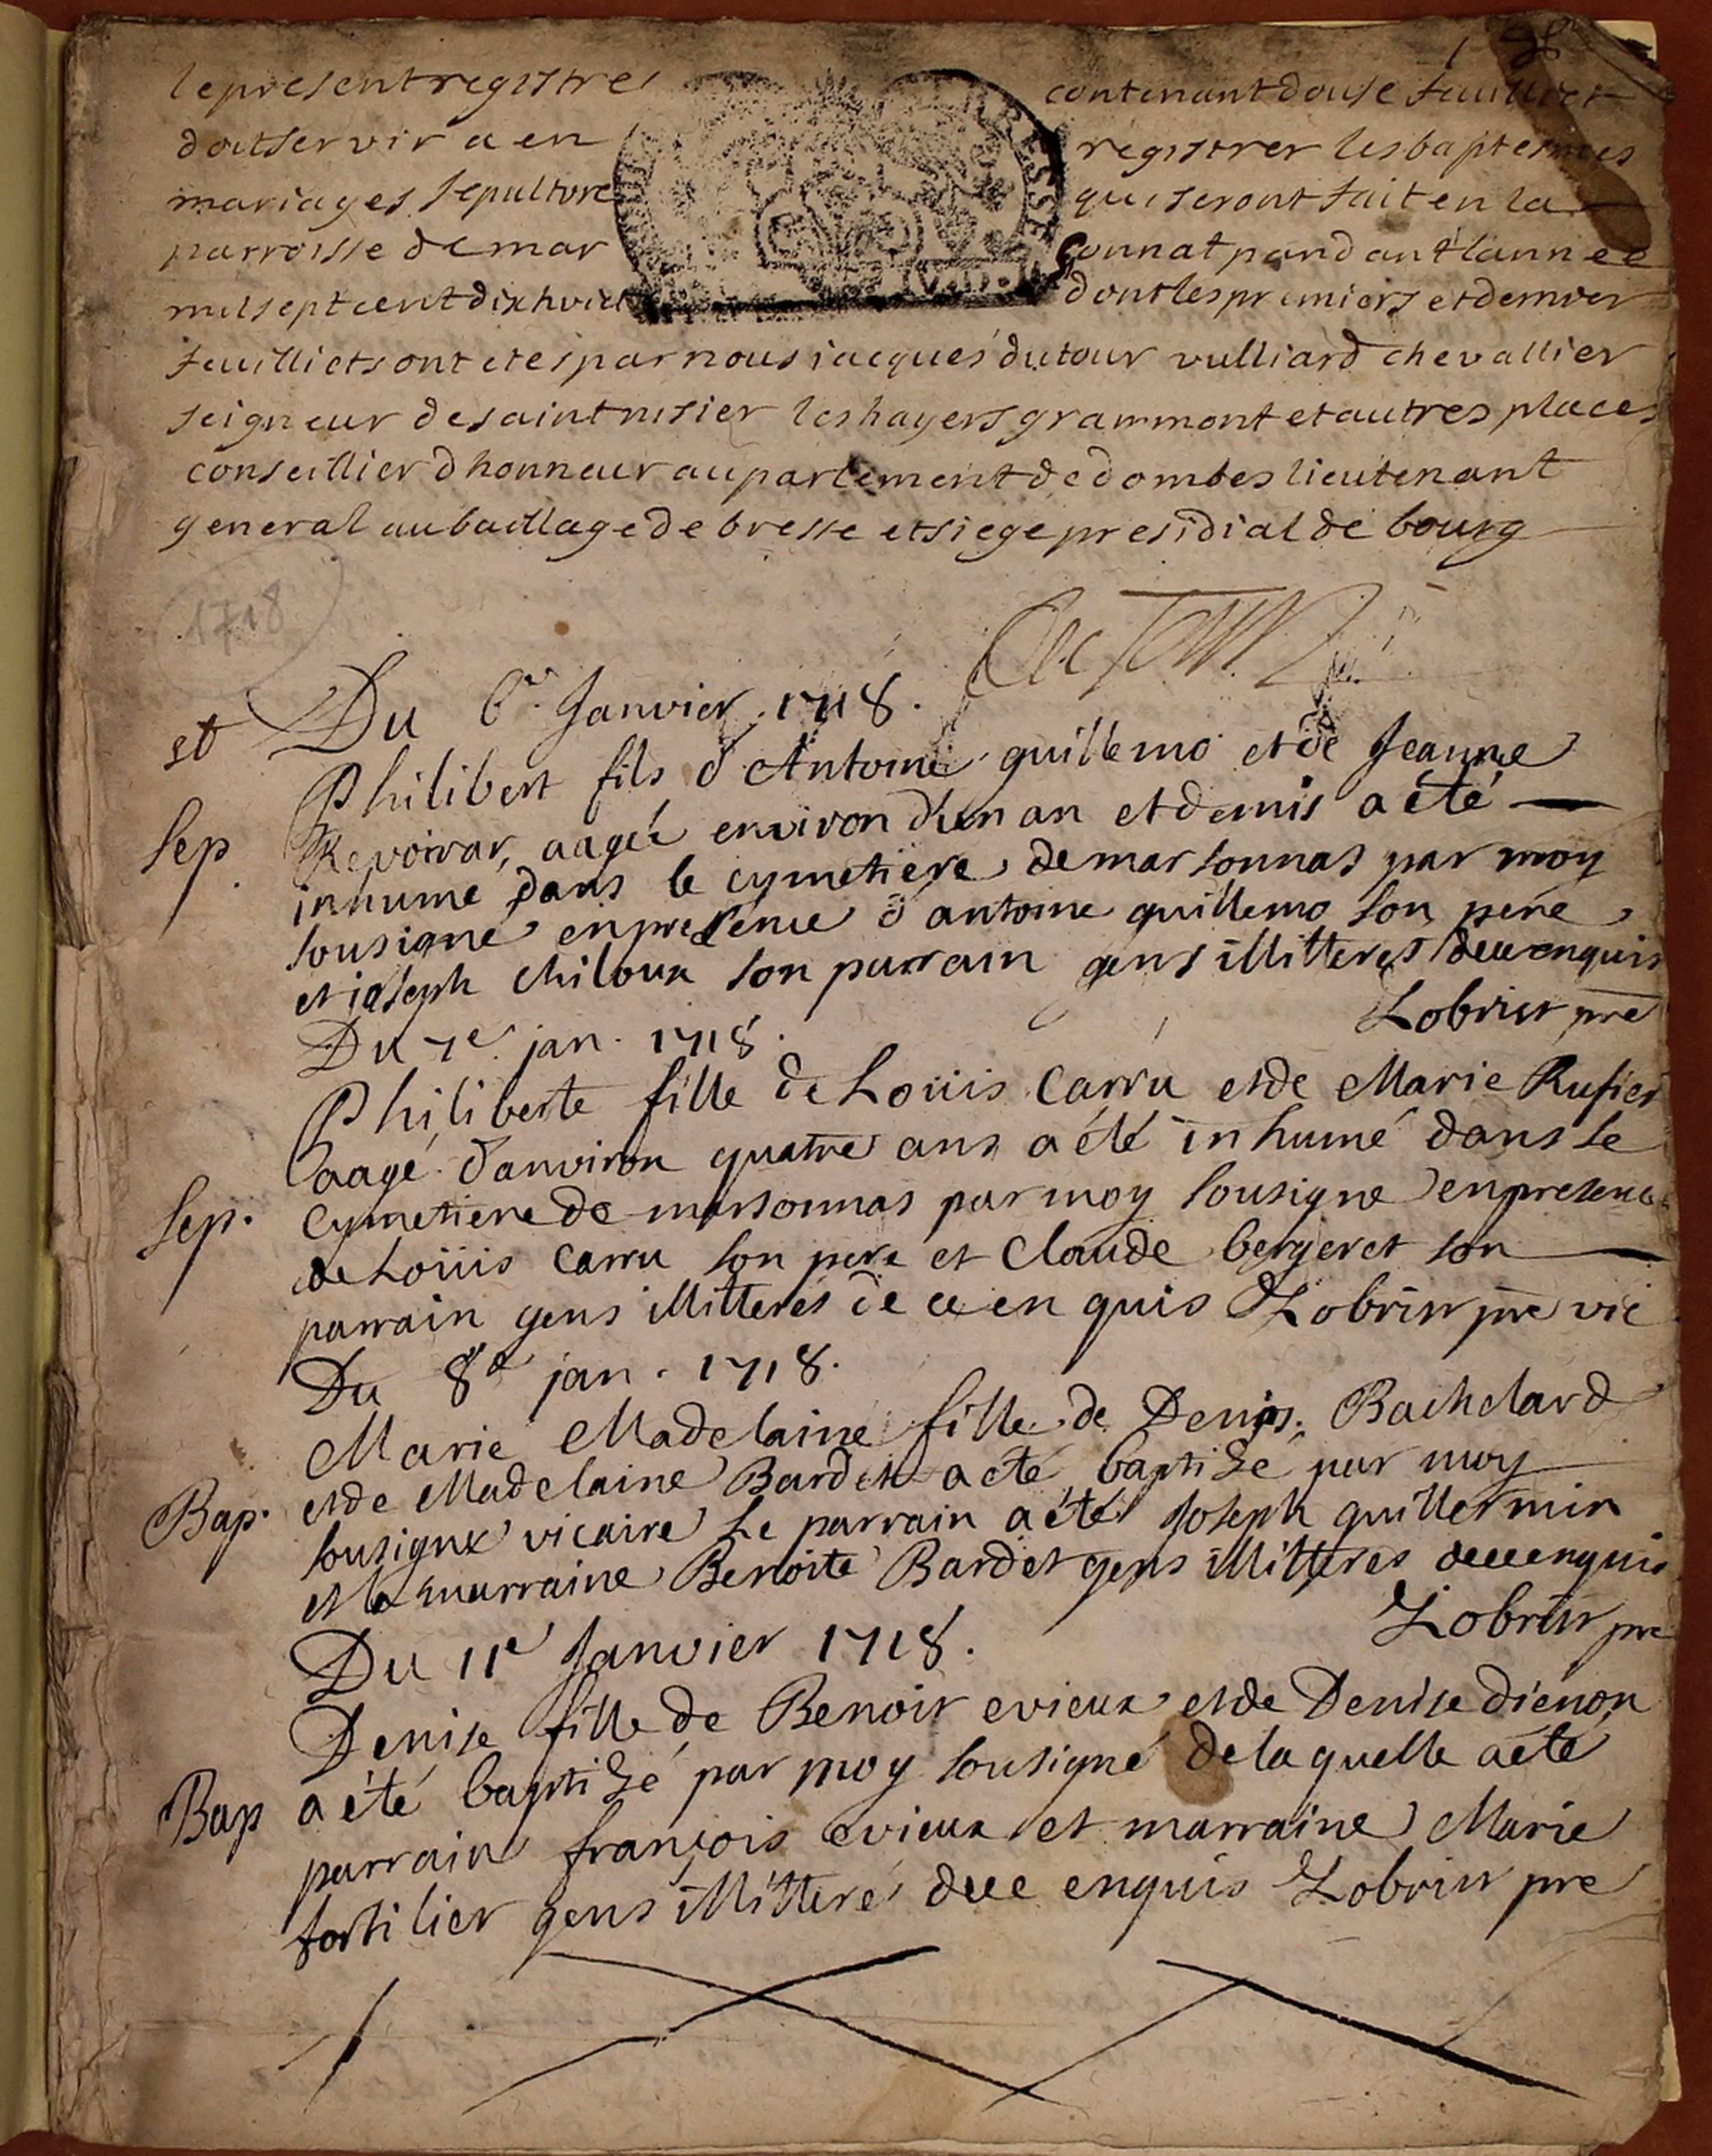 le present registres contenant douse feuilliets
doit servir a en registrer les baptesmes
mariages sepulture qui seront fait en la
parroisse de mar sonnat pandant lannee
mil sept cent dix huict dont les premiers et dernier
feuilliets ont etes par nous jacques dutour vulliard chevallier
seigneur de saint nisier les hayers grammont et autres places
conseillier dhonneur au parlement de dombes lieutenant
general au baillage de bresse et siege presidial de bourg
1718
Du 6e Janvier 1718.
st
Philibert fils d'Antoine guillemo et de Jeanne
Sep
Revoirar, aagée environ d'un an et demis a été
inhumé dans le cymetiere de marsonnas par moy
sousigné en presence d'antoine guillemo son pere
et joseph Chiloux son parrain gens illitteres de ce enquis
Lobriet pre
Du 7e jan. 1718.
Philiberte fille de Loüis Carru et de Marie Rufier
aagé d'anviron quatre ans a été inhumé dans le
Sep.
Cymetiere de marsonnas par moy sousigne en presence
de Loüis Carru son pere et Claude bergeret son
parrain gens illitterés de ce en quis Lobriet pre vic
Du 8e jan. 1718.
Marie Madelaine fille de Denis Bachelard
et de Madelaine Bardet a eté baptizé par moy
Bap.
sousigné vicaire Le parrain a été Joseph guillermin
et la marraine Benoite Bardet gens illitteres de ce enquis
Lobriet pre
Du 11e Janvier 1718.
Denise fille de Benoit evieux et de Denise dienon
a été baptizé par moy sousigné de laquelle a été
Bap
parrain françois evieux et marraine Marie
fortilier gens illitteré de ce enquis Lobriet pre